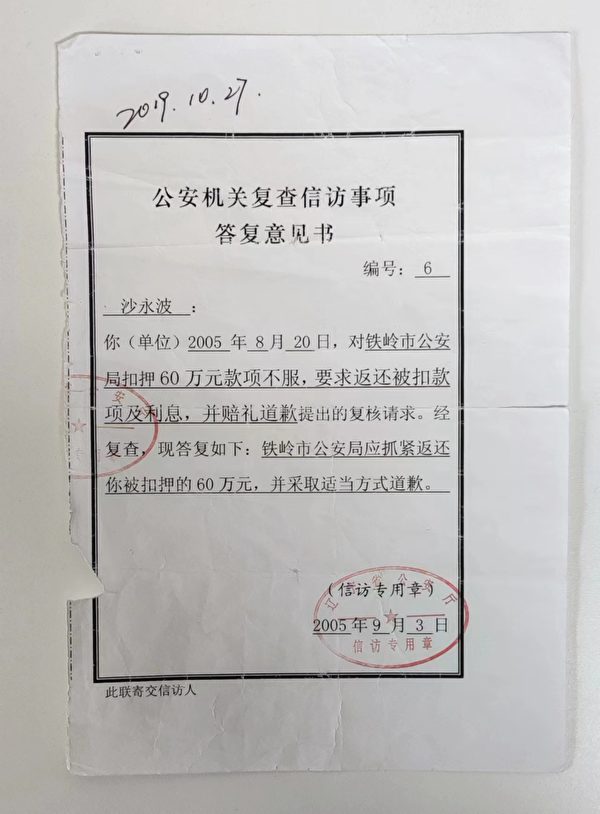 2019.10.27.
公安机关复查信访事项
答复意见书
编号： 6
沙永波 ：
你（单位）2005 年 8 月 20 日，对铁岭市公安
局扣押 60 万元款项不服，要求返还被扣款
项及利息，并赔礼道歉提出的复核请求。经
复查，现答复如下：铁岭市公安局应抓紧返还
你被扣押的 60 万元，并采取适当方式道歉。
安
专
（信访专用章）
辽宁省公安厅
2005 年 9 月 3 日
信访专用章
此联寄交信访人